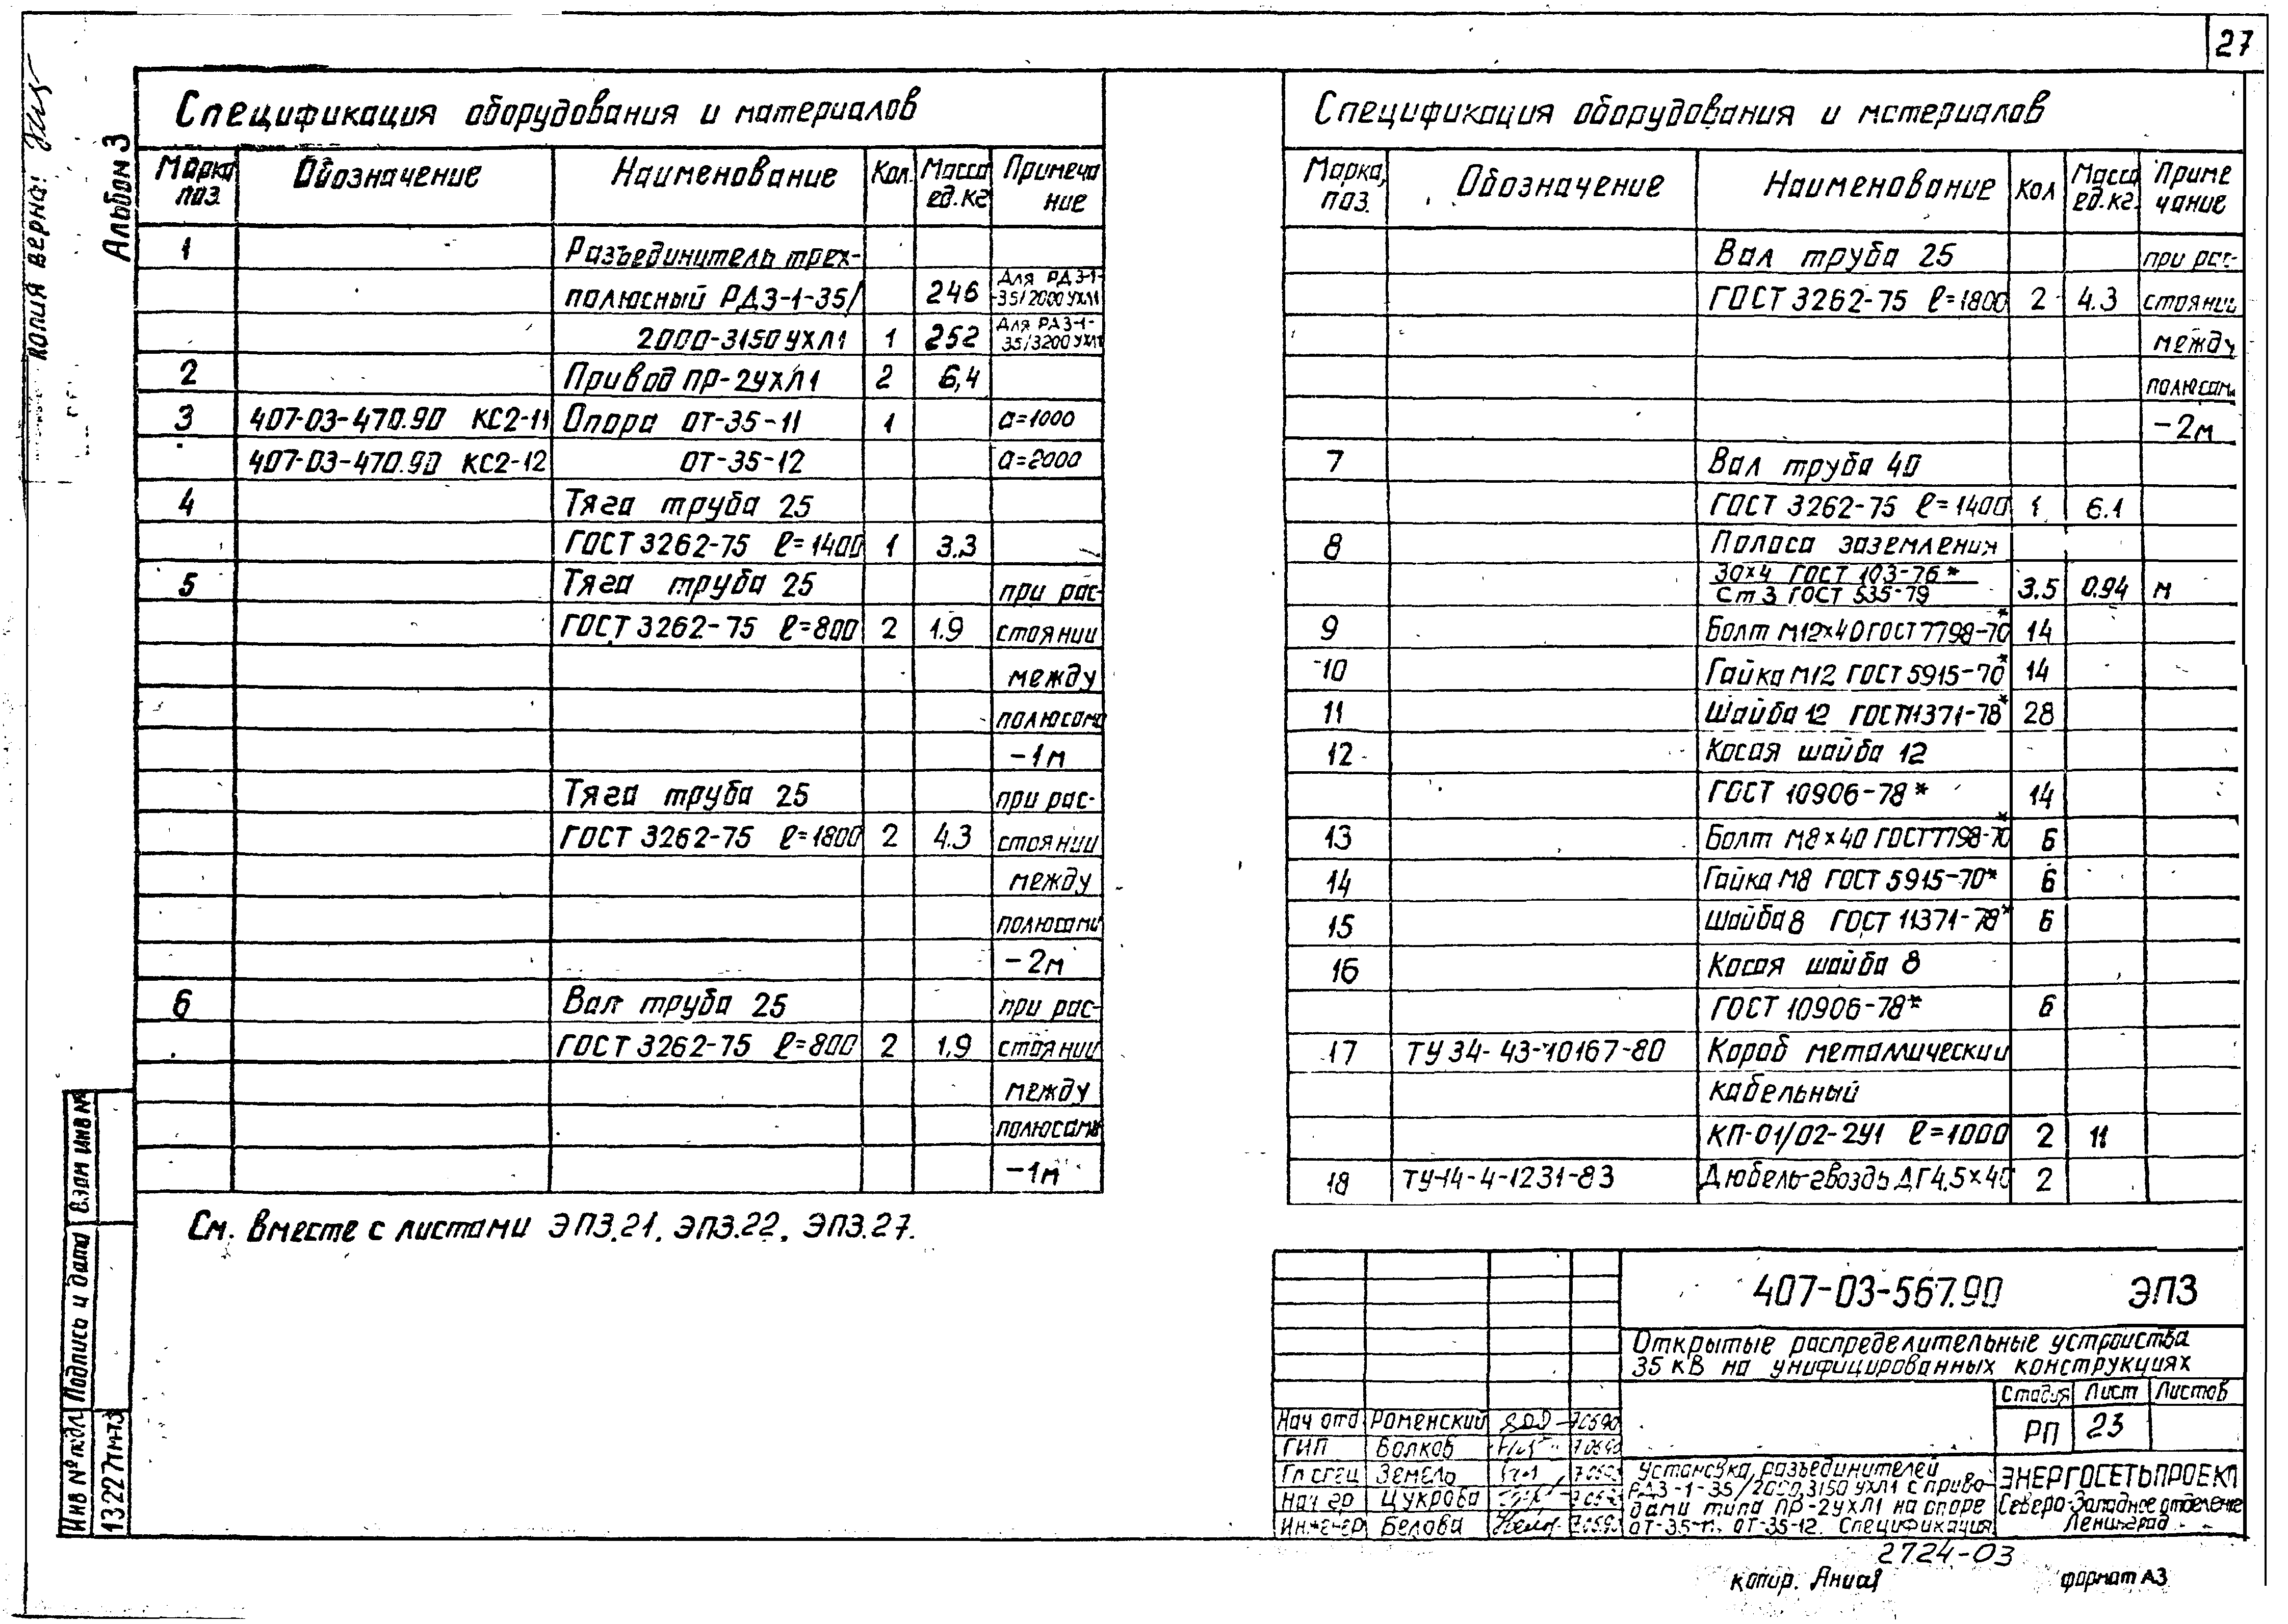 27
Копия верна:
Альбом 3
Спецификация оборудования и материалов
Марка поз. Обозначение Наименование Кол. Масса ед.кг Примечание
1 Разъединитель трех-
полюсный РДЗ-1-35/ 246 Для РДЗ-1-35/2000 УХЛ1
2000-3150 УХЛ1 1 252 Для РДЗ-1-35/3200 УХЛ1
2 Привод ПР-2УХЛ1 2 6,4
3 407-03-470.90 КС2-11 Опора ОТ-35-11 1 а=1000
407-03-470.90 КС2-12 ОТ-35-12 а=2000
4 Тяга труба 25
ГОСТ 3262-75 ℓ=1400 1 3.3
5 Тяга труба 25 при рас-
ГОСТ 3262-75 ℓ=800 2 1.9 стоянии
между
полюсами
-1м
Тяга труба 25 при рас-
ГОСТ 3262-75 ℓ=1800 2 4.3 стоянии
между
полюсами
-2м
6 Вал труба 25 при рас-
ГОСТ 3262-75 ℓ=800 2 1.9 стоянии
между
полюсами
-1м
См. вместе с листами ЭП3.21, ЭП3.22, ЭП3.27.
Спецификация оборудования и материалов
Марка, поз. Обозначение Наименование Кол Масса ед.кг. Примечание
Вал труба 25 при рас-
ГОСТ 3262-75 ℓ=1800 2 4.3 стоянии
между
полюсами
-2м
7 Вал труба 40
ГОСТ 3262-75 ℓ=1400 1 6.1
8 Полоса заземления
30×4 ГОСТ 103-76*
Ст3 ГОСТ 535-79 3.5 0.94 м
9 Болт М12×40 ГОСТ 7798-70* 14
10 Гайка М12 ГОСТ 5915-70* 14
11 Шайба 12 ГОСТ 11371-78* 28
12 Косая шайба 12
ГОСТ 10906-78* 14
13 Болт М8×40 ГОСТ 7798-70* 6
14 Гайка М8 ГОСТ 5915-70* 6
15 Шайба 8 ГОСТ 11371-78* 6
16 Косая шайба 8
ГОСТ 10906-78* 6
17 ТУ 34-43-10167-80 Короб металлический
кабельный
КП-01/02-2У1 ℓ=1000 2 11
18 ТУ-14-4-1231-83 Дюбель-гвоздь ДГ4,5×40 2
407-03-567.90 ЭП3
Открытые распределительные устройства
35 кВ на унифицированных конструкциях
Стадия Лист Листов
РП 23
Нач отд Роменский 7.05.90
ГИП Волков 7.05.90
Гл спец Земело
Нач гр Цукрова
Инженер Белова 7.05.90
Установка разъединителей
РДЗ-1-35/2000,3150 УХЛ1 с приво-
дами типа ПР-2УХЛ1 на опоре
ОТ-35-11, ОТ-35-12. Спецификация
ЭНЕРГОСЕТЬПРОЕКТ
Северо-Западное отделение
Ленинград
2724-03
копир. формат А3
Взам инв №
Подпись и дата
Инв № подл
13227тм-т3